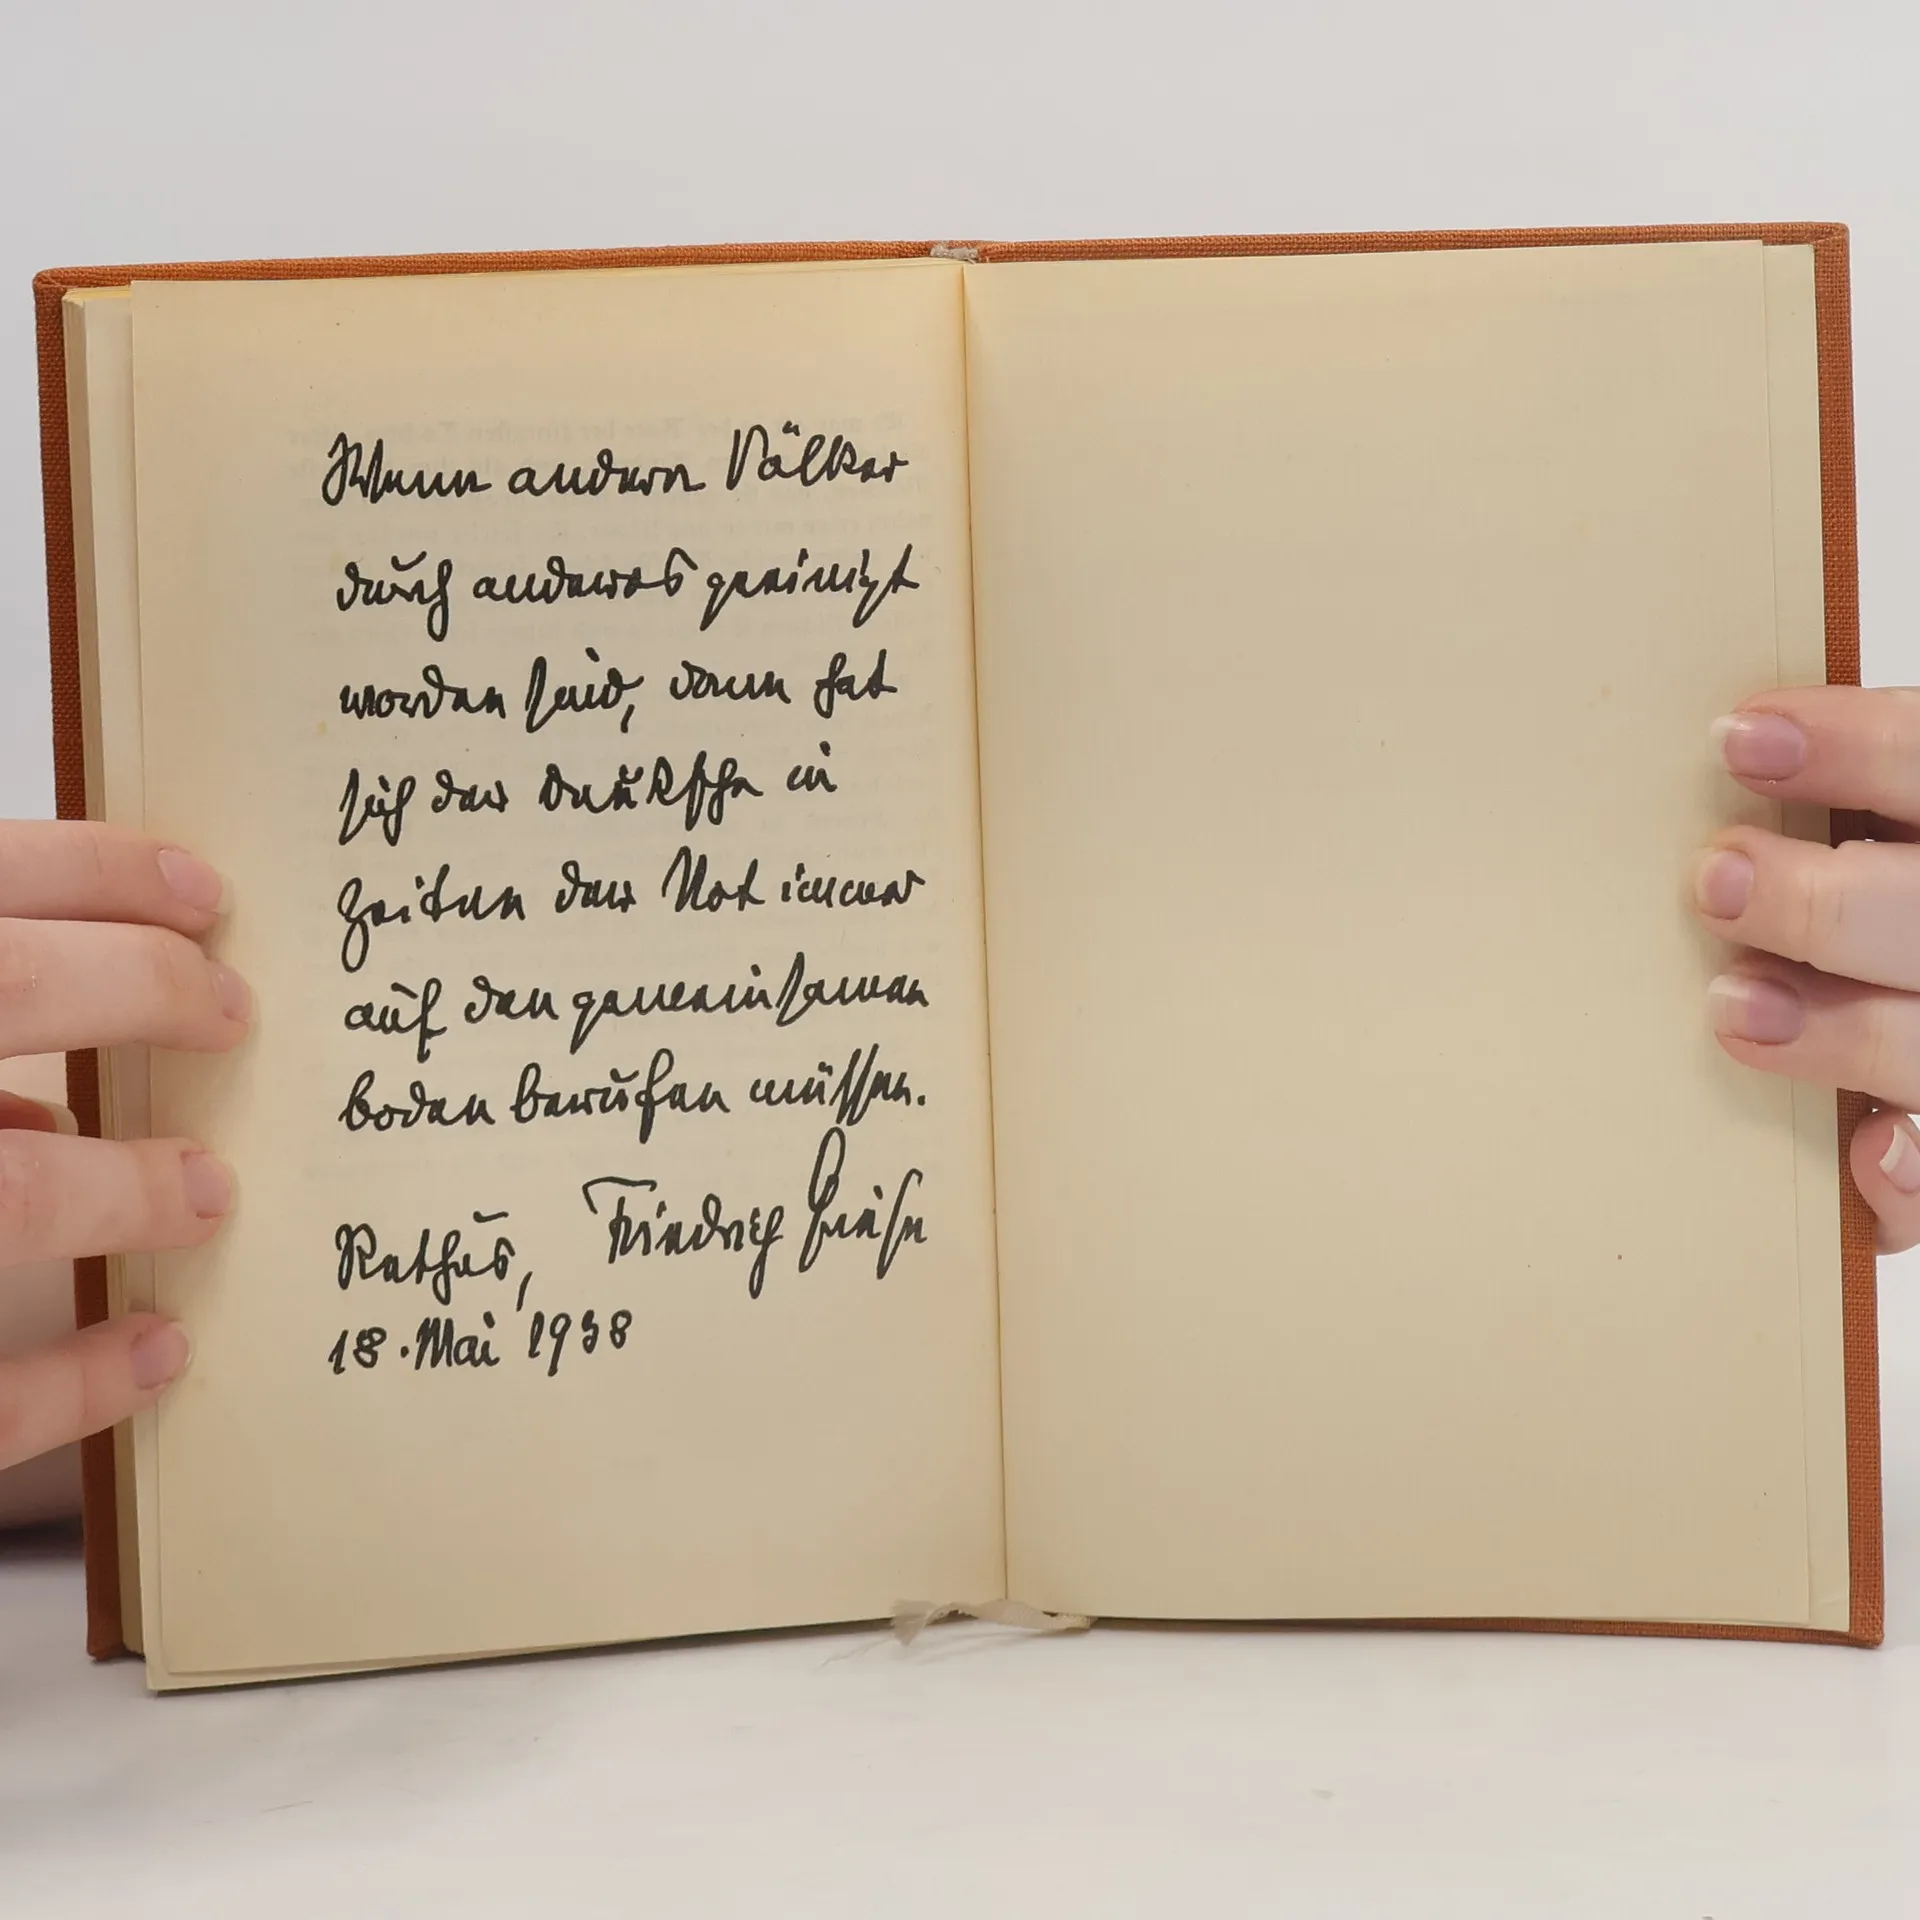 Wenn andern Völker
durch anderes geeinigt
worden seid, dann hat
sich der Deutsche in
Zeiten der Not immer
auf den gemeinsamen
boden berufen müssen.
Friedrich Griese
Rethus,
18. Mai 1938